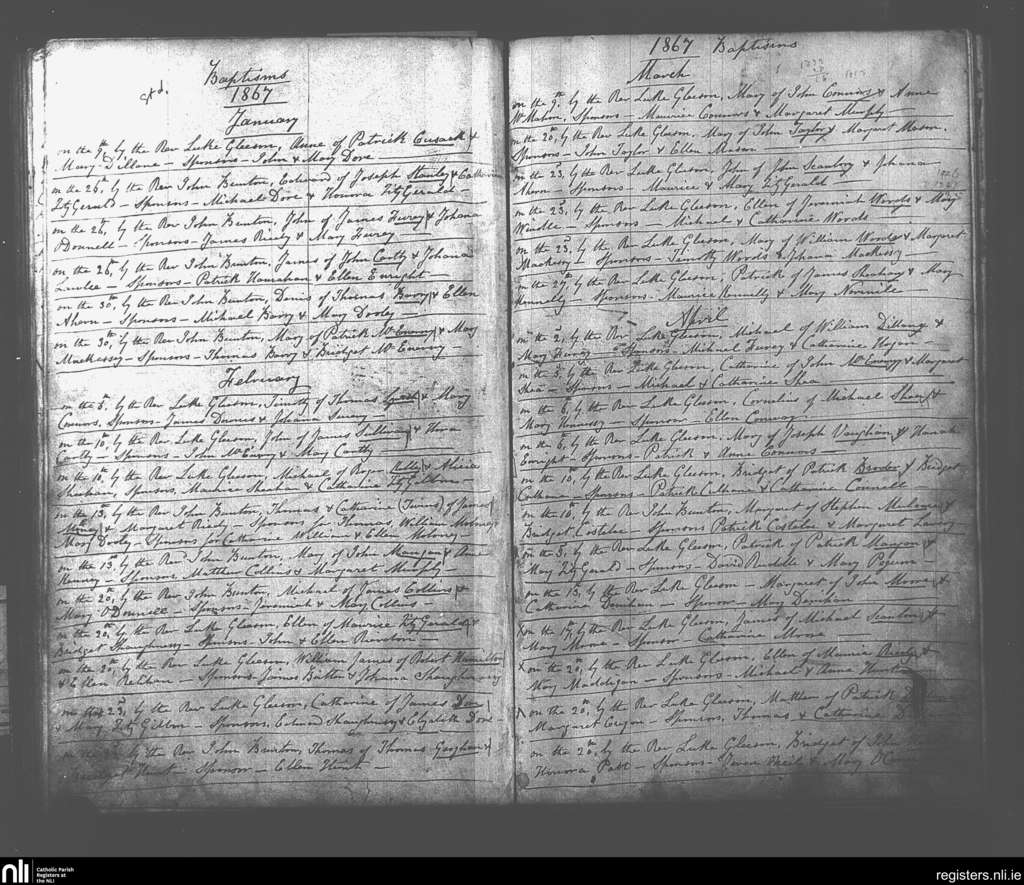 Baptisms
1867
January
on the 9th, by the Rev Luke Gleeson, Anne of Patrick Cusack &
Mary Dillane - Sponsors - John & Mary Dore -
on the 26th, by the Rev John Bunton, Edward of Joseph Stanley & Catherine
FitzGerald - Sponsors - Michael Dore & Honora FitzGerald -
on the 26th, by the Rev John Bunton, John of James Furey & Johana
O'Donnell - Sponsors - James Riedy & Mary Furey
on the 26th, by the Rev John Bunton, James of John Coatly & Johana
- Sponsors - Patrick Hanrahan & Ellen Enright -
on the 30th, by the Rev John Bunton, Denis of Thomas Barry & Ellen
Ahern - Sponsors - Michael Barry & Mary Dooley -
on the 30th, by the Rev John Bunton, Mary of Patrick McEneiry & Mary
Mackessy - Sponsors - Thomas Barry & Bridget McEneiry -
February
on the 5th, by the Rev Luke Gleeson, Timothy of Thomas & Mary
Connors, Sponsors - James & Johana
on the 10th, by the Rev Luke Gleeson, John of James Sullivan & Hanora
Coatly - Sponsors - John McEneiry & Mary Coatly
on the 10th, by the Rev Luke Gleeson, Michael of Roger & Alicia
Sheehan, Sponsors, Maurice Sheehan & Catherine FitzGibbon -
on the 13th, by the Rev John Bunton, Thomas & Catherine (Twins) of James
& Margaret Riedy - Sponsors for Thomas, William Moloney
Mary Dooly - Sponsors for Catherine William & Ellen Moloney -
on the 13th, by the Rev John Bunton, Mary of John Mangan & Anne
- Sponsors Matthew Collins & Margaret Murphy -
on the 20th, by the Rev John Bunton, Michael of James Collins &
Mary O'Donnell - Sponsors - Jeremiah & Mary Collins -
on the 20th, by the Rev Luke Gleeson, Ellen of Maurice FitzGerald &
Bridget Shaughnessy - Sponsors - John & Ellen
on the 20th, by the Rev Luke Gleeson, William James of Robert Hamilton
& Ellen Relihan - Sponsors - James & Johana Shaughnessy
on the 23rd, by the Rev Luke Gleeson, Catherine of James Dore
& Mary FitzGibbon - Sponsors, Edward Shaughnessy & Elizabeth Dore
by the Rev John Bunton, Thomas of Thomas Geoghan &
Bridget Hunt - Sponsor - Ellen Hunt -
1867 Baptisms
March
on the 9th, by the Rev Luke Gleeson, Mary of John Connors & Anne
McMahon, Sponsors - Maurice Connors & Margaret Murphy
on the 20th, by the Rev Luke Gleeson, Mary of John Taylor & Margaret Mason.
Sponsors - John Taylor & Ellen Mason
on the 23rd, by the Rev Luke Gleeson, John of John Scanlon & Johana
Ahern - Sponsors - Maurice & Mary FitzGerald -
on the 23rd, by the Rev Luke Gleeson, Ellen of Jeremiah Woods & Mary
Windle - Sponsors - Michael & Catherine Woods -
on the 23rd, by the Rev Luke Gleeson, Mary of William Woods & Margaret
Mackessy - Sponsors - Timothy Woods & Johana Mackessy -
on the 27th, by the Rev Luke Gleeson, Patrick of James Sheehy & Mary
Kennelly - Sponsors - Maurice Kennelly & Mary Normile -
April
on the 2nd, by the Rev Luke Gleeson, Michael of William Dillane &
Mary Furey - Sponsors - Michael Furey & Catherine Hogan
on the 3rd, by the Rev Luke Gleeson, Catherine of John McEneiry & Margaret
Shea - Sponsors - Michael & Catherine Shea
on the 6th, by the Rev Luke Gleeson, Cornelius of Michael Shea &
Mary Hennessy - Sponsor - Ellen Conway
on the 6th, by the Rev Luke Gleeson, Mary of Joseph Vaughan & Hanah
Enright - Sponsors - Patrick & Anne Connors -
on the 10th, by the Rev Luke Gleeson, Bridget of Patrick & Bridget
Culhane - Sponsors - Patrick Culhane & Catherine Connell
on the 10th, by the Rev John Bunton, Margaret of Stephen &
Bridget Costeloe - Sponsors Patrick Costeloe & Margaret
on the 3rd, by the Rev Luke Gleeson, Patrick of Patrick Mangan &
Mary FitzGerald - Sponsors - David & Mary
on the 13th, by the Rev Luke Gleeson - Margaret of John Moore &
Catherine Denihan - Sponsor - Mary Denihan -
on the 17th, by the Rev Luke Gleeson, James of Michael Scanlon &
Mary Moore - Sponsor - Catherine Moore
on the 20th, by the Rev Luke Gleeson, Ellen of Maurice Riedy &
Mary Maddigan - Sponsors - Michael & Anne
on the 20th, by the Rev Luke Gleeson, Matthew of Patrick
Margaret - Sponsors, Thomas & Catherine
on the 20th, by the Rev Luke Gleeson, Bridget of John
Honora - Sponsors - & Mary
nli
Catholic Parish
Registers at
the NLI
registers.nli.ie